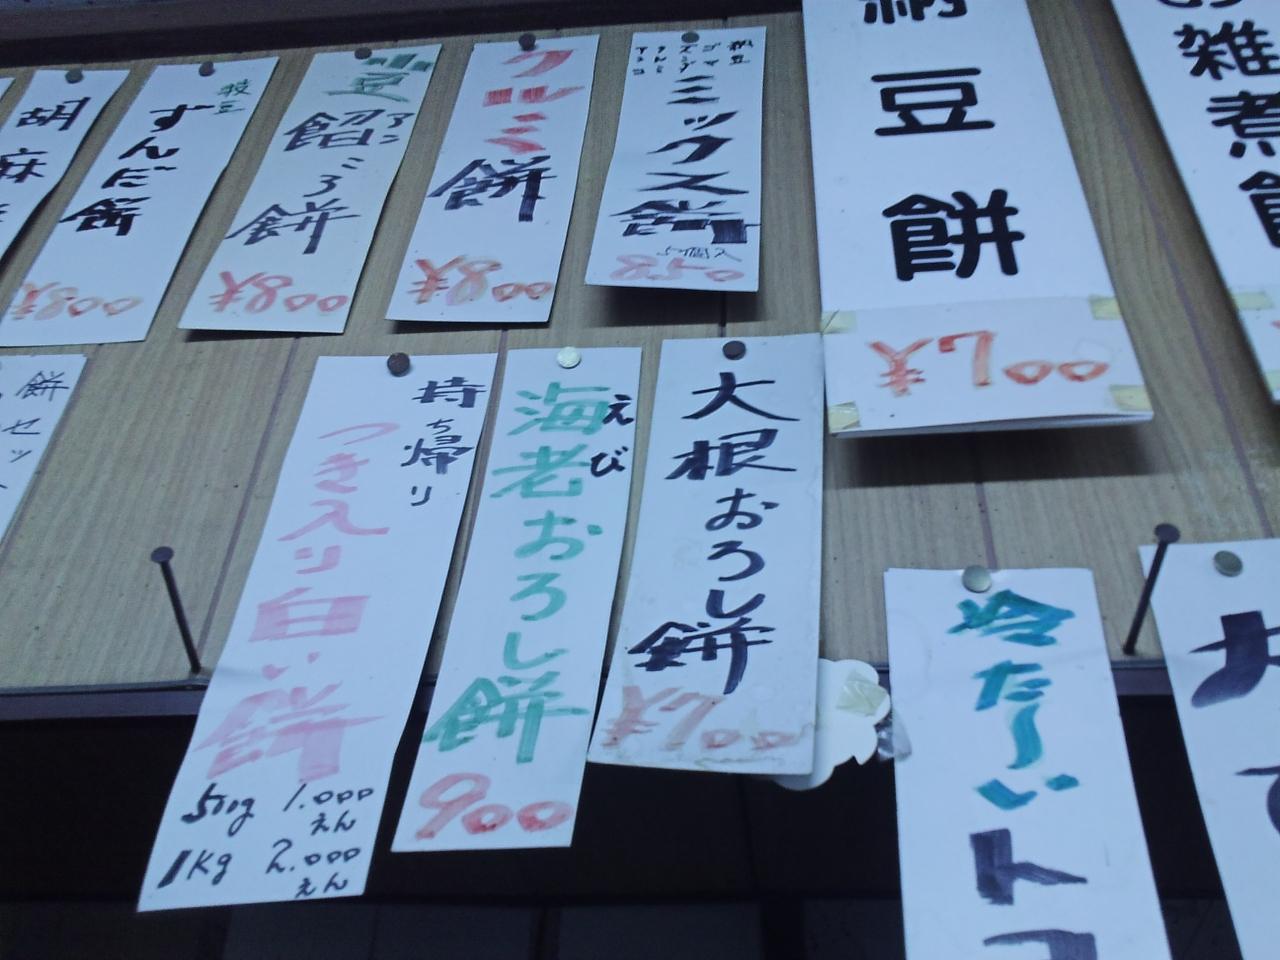 雑煮
納豆餅
¥700
納豆
ゴマ
ズンダ
クルミ
アンコ
ミックス餅
5個入
850
クルミ餅
¥800
小豆
餡ころ餅
アン
¥800
枝豆
ずんだ餅
¥800
胡麻
大根おろし餅
¥700
えび
海老おろし餅
900
持ち帰り
つき入り白い餅
500g 1.000
えん
1kg 2.000
えん
餅セッ
冷た〜い
ト